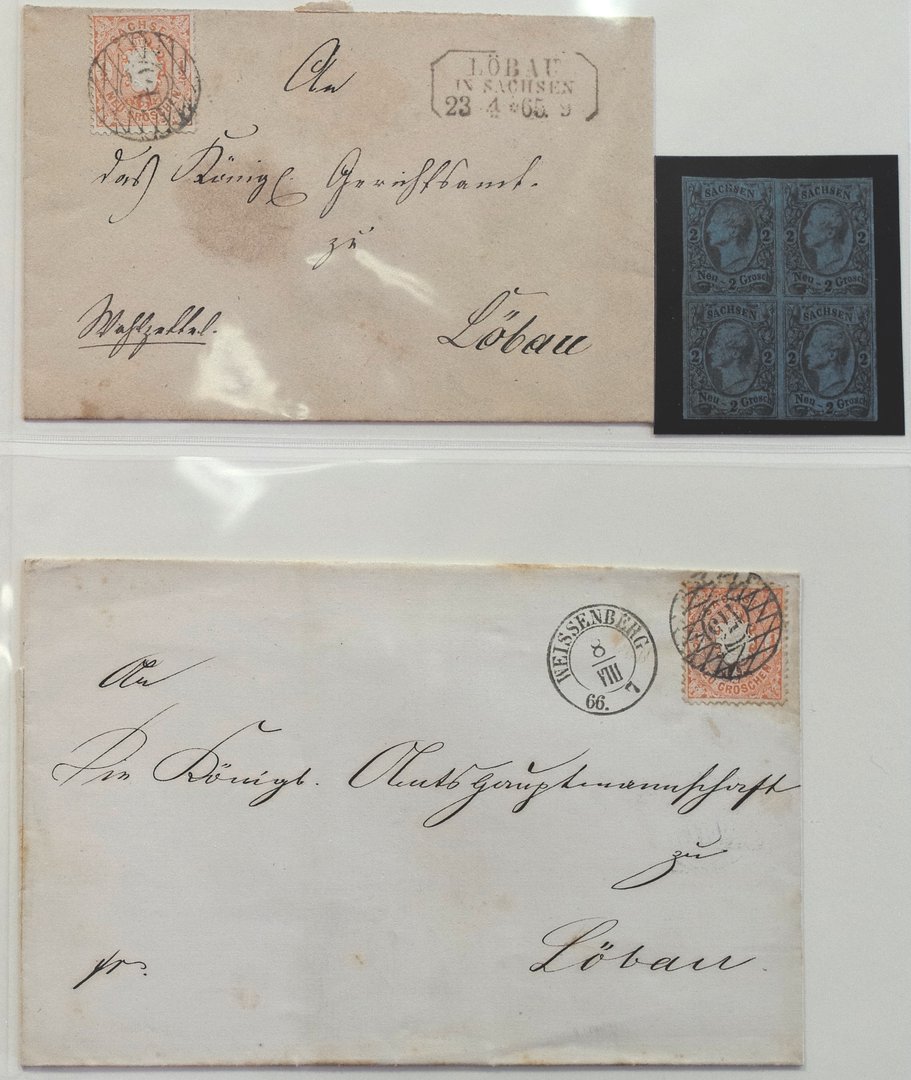 SACHSEN
NEU-GROSCHEN
LÖBAU
IN SACHSEN
23 4 *65. 9
An
das Königl. Gerichtsamt.
zu
Löbau
Wahlzettel.
SACHSEN SACHSEN
2 2 2 2
Neu - 2 Grosch Neu - 2 Grosch
SACHSEN SACHSEN
2 2 2 2
Neu - 2 Grosch Neu - 2 Grosch
WEISSENBERG
8
VIII
66. 7
GROSCHEN
An
Die Königl. Amtshauptmannschaft
zu
Löbau.
fr.